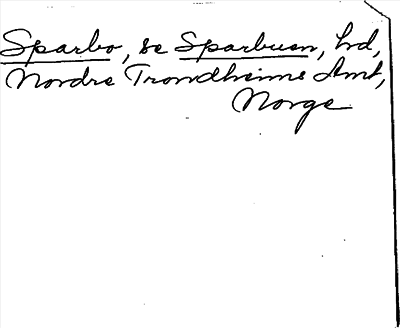 Sparbo, se Sparbuen, hd,
Nordre Trondheims Amt,
Norge